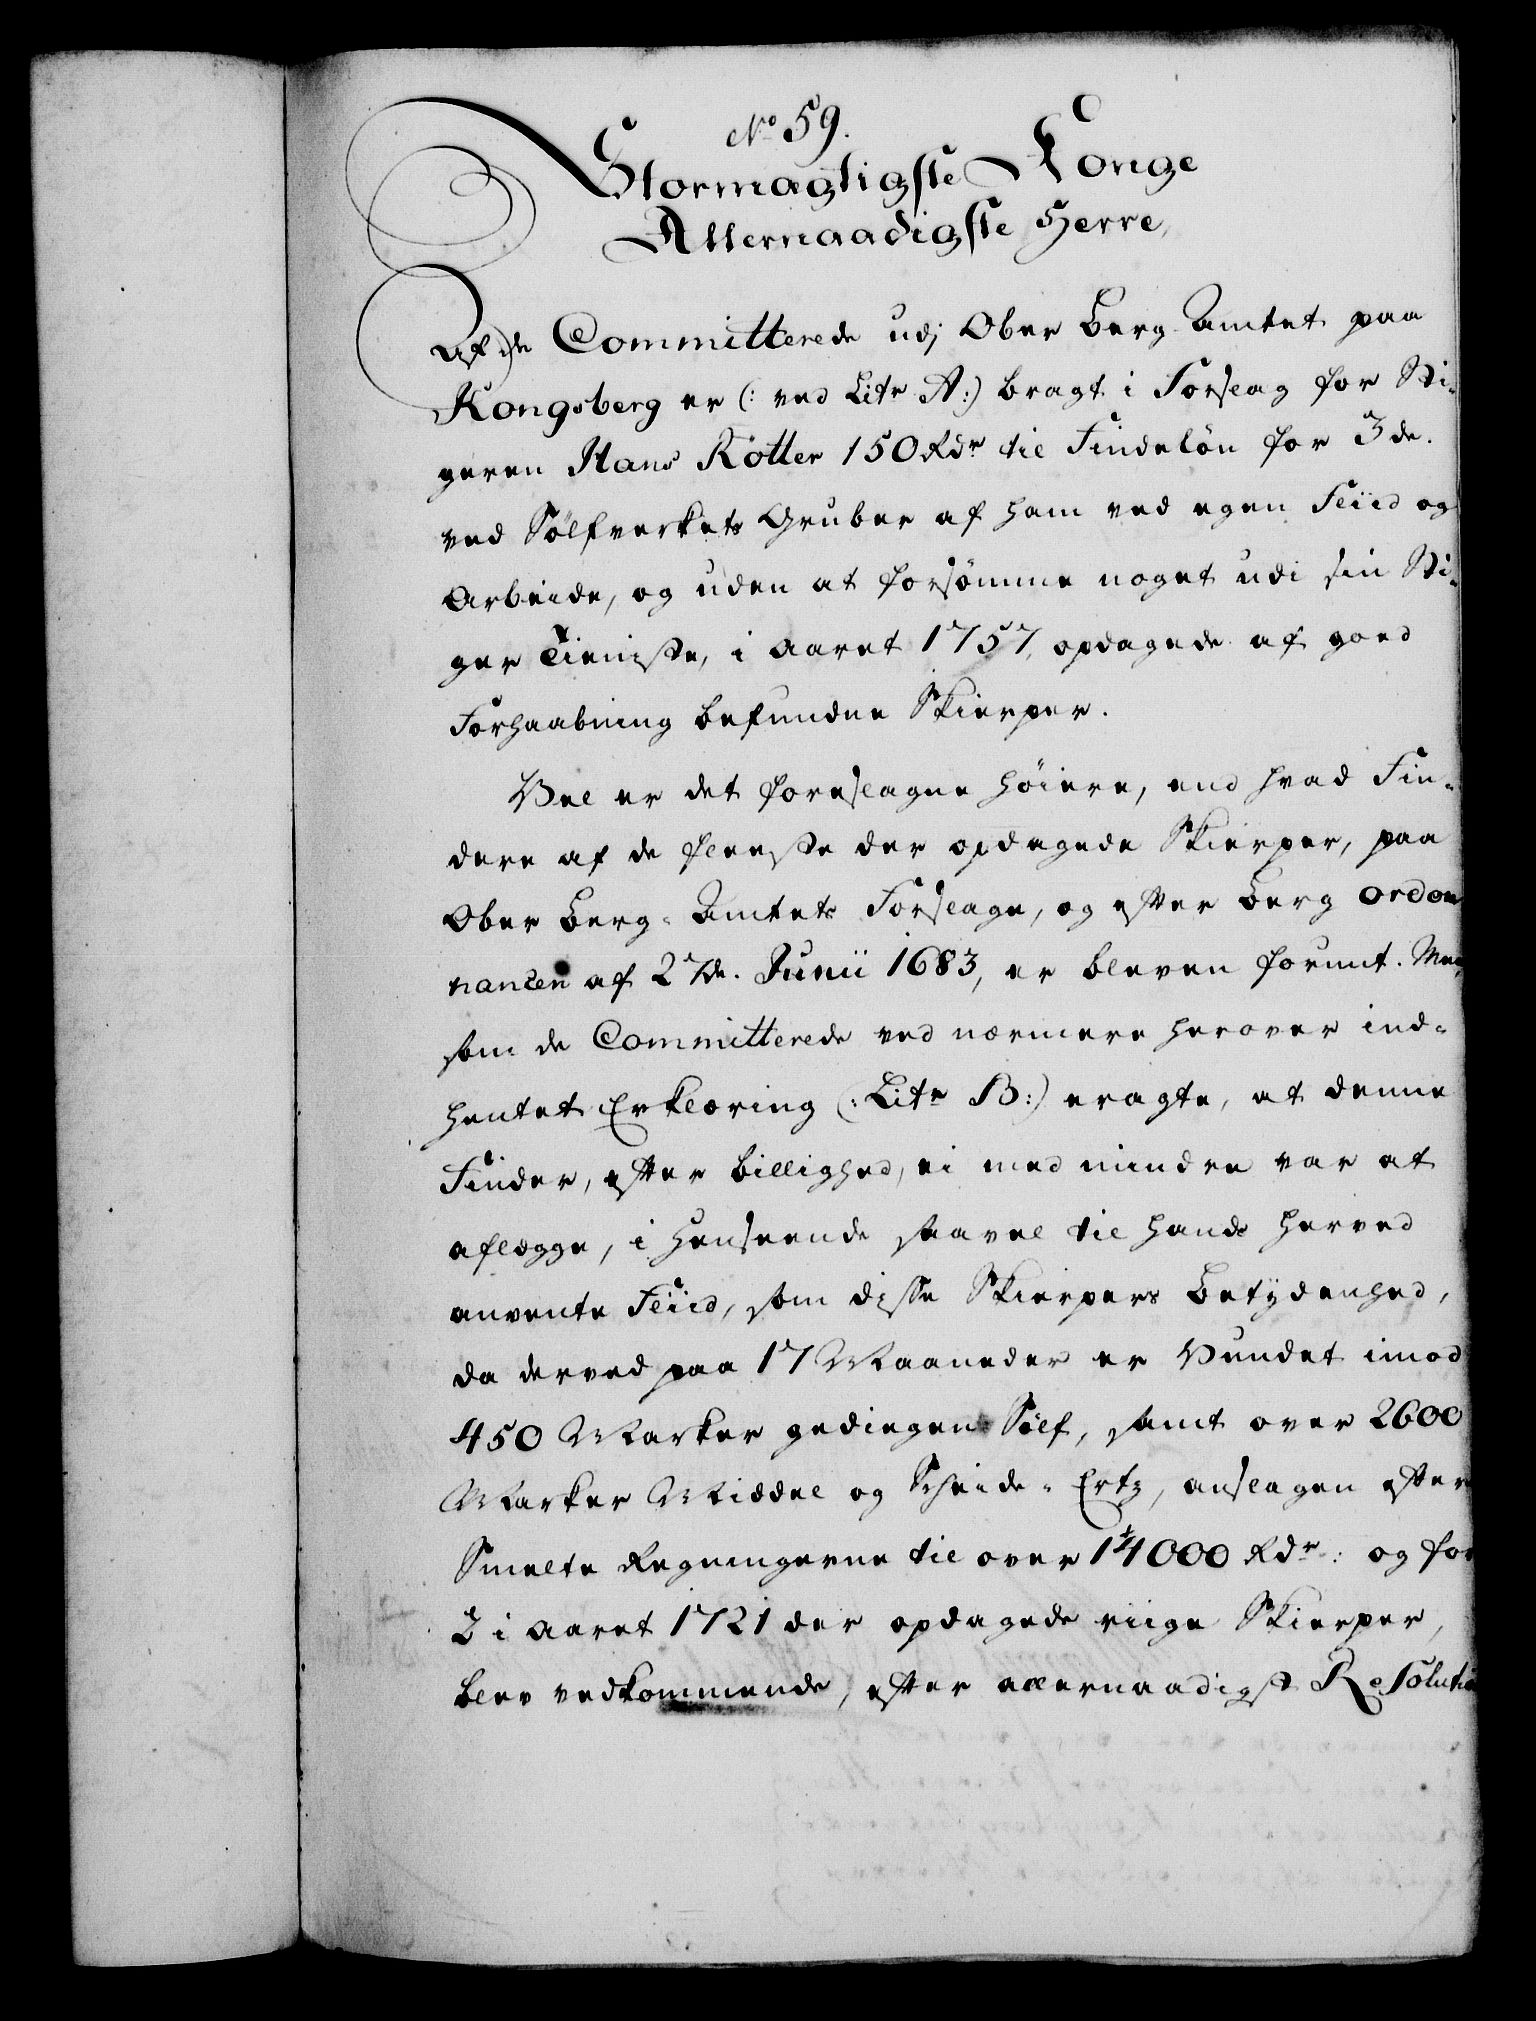 No 59.
Stormagtigste Konge
Allernaadigste Herre,
Af de Committerede udj Ober Berg-Amtet paa
Kongsberg er (: ved Litr A:) bragt i Forslag for Sti-
geren Hans Kötter 150 Rdr til Findelön for 3de.
ved Sölfverkets Gruber af ham ved egen Fliid og
Arbeide, og uden at forsömme noget udi sin Sti-
ger Tieniste, i Aaret 1757, opdagede af goed
Forhaabning befundne Skierper.
Vel er det foreslagne höiere, end hvad Fin-
dere af de fleeste der opdagede Skierper, paa
Ober Berg-Amtets Forslage, og efter Berg Ordon
nancen af 27de. Junii 1683, er bleven forunt. Men
som de Committerede ved nærmere herover ind-
hentet Erklæring (: Litr B:) eragte, at denne
Finder, efter billighed, ei med mindre var at
aflægge, i Henseende saavel til hands herved
anvente Fliid, som disse Skierpers Betÿdenhed,
da derved paa 17 Maaneder er Vundet imod
450 Marker gediegen Sölf, samt over 2600
Marker Middel og Scheide-Ertz, anslagen efter
Smelte Regningerne til over 14000 Rdr: og for
2 i Aaret 1721 der opdagede riige Skierper,
blev vedkommende, efter allernaadigst Resolution